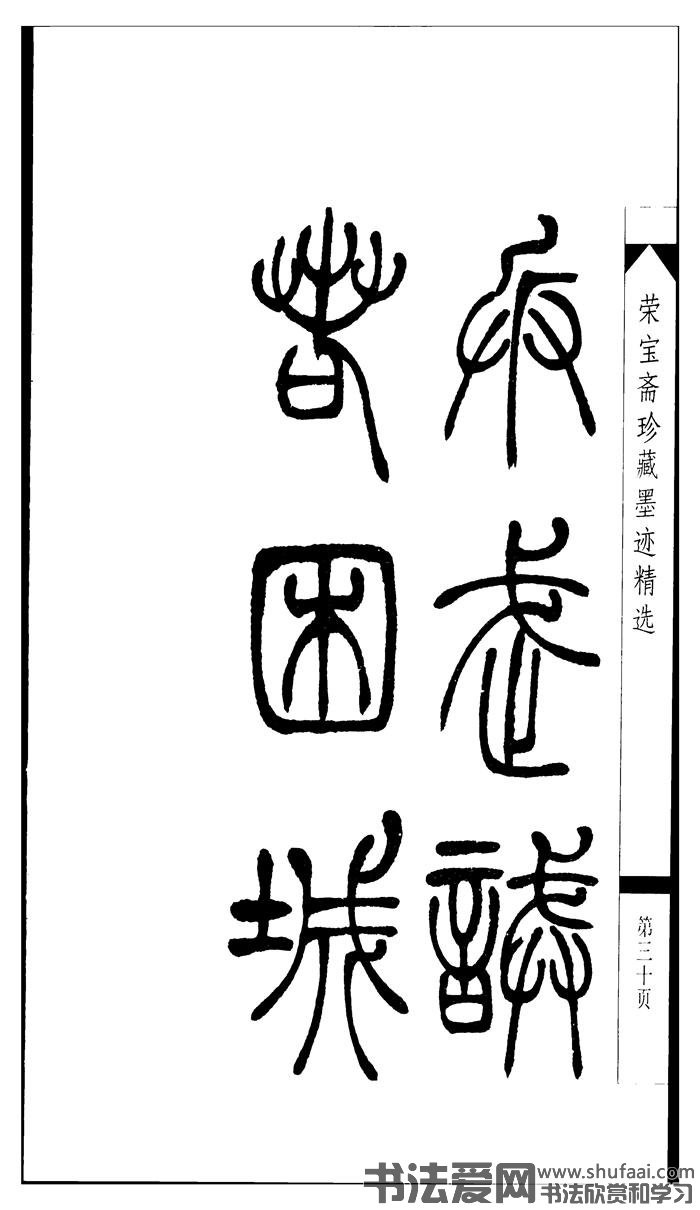 荣宝斋珍藏墨迹精选
第三十页
武
者困城
书法爱网 www.shufaai.com
书法欣赏和学习